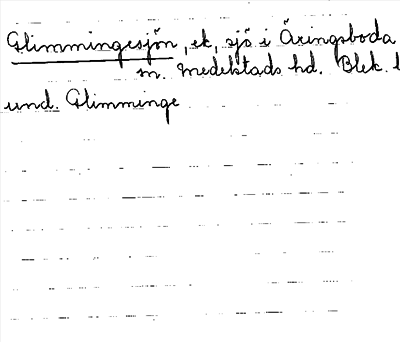 Glimmingesjön, ek, sjö i Äringsboda
m. Medelstads hd. Blek. l
und. Glimminge